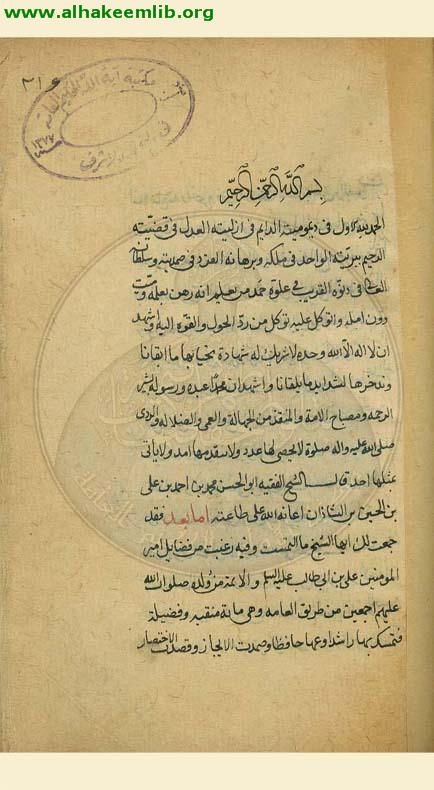 www.alhakeemlib.org
٣١٤
بسم الله الرحمن الرحيم
الحمد لله الاول في ديموميته الدايم في ازليته العدل في قضيته
الرحيم ببريته الواحد في ملكه وبرهانه الفرد في صمديته وسلطانه
العالي في دنوه القريب في علوه حمد من يعلم انه رهن بعلمه
دون امله واتوكل عليه توكل من رد الحول والقوه اليه واشهد
ان لا اله الا الله وحده لا شريك له شهادة نحيا بها ما ابقانا
وندخرها لشدايد ما يلقانا واشهد ان محمدا عبده ورسوله
الرحمه ومصباح الامة والمنقذ من الجهالة والعمى والضلاله والردى
صلى الله عليه واله صلوة لا يحصى لها عدد ولا ينفد منها امد ولا ياتي
بمثلها احد قال الشيخ الفقيه ابو الحسن محمد بن احمد بن علي
بن الحسين بن الشاذان اعانه الله على طاعته اما بعد فقد
جمعت لك ايها الشيخ ما التمست وفيه رغبت من فضايل امير
المومنين علي بن ابي طالب عليه السلم والائمة من ولده صلوات الله
عليهم اجمعين من طريق العامه وهي مائة منقبه وفضيلة
فتمسك بها راشدا وعها حافظا وصمدت الايجاز وقصدت الاختصار